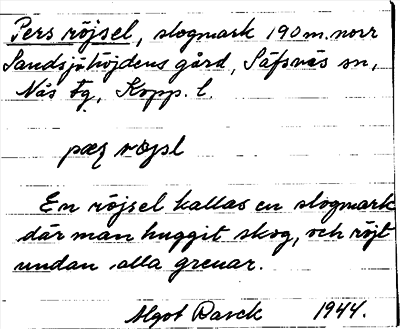 Pers röjsel, slogmark 190 m. norr
Sandsjöhöjdens gård, Säfsnäs sn,
Nås tg, Kopp. l.
pæʂ røjsl
En röjsel kallas en slogmark
där man huggit skog, och röjt
undan alla grenar.
Algot Barck 1944.